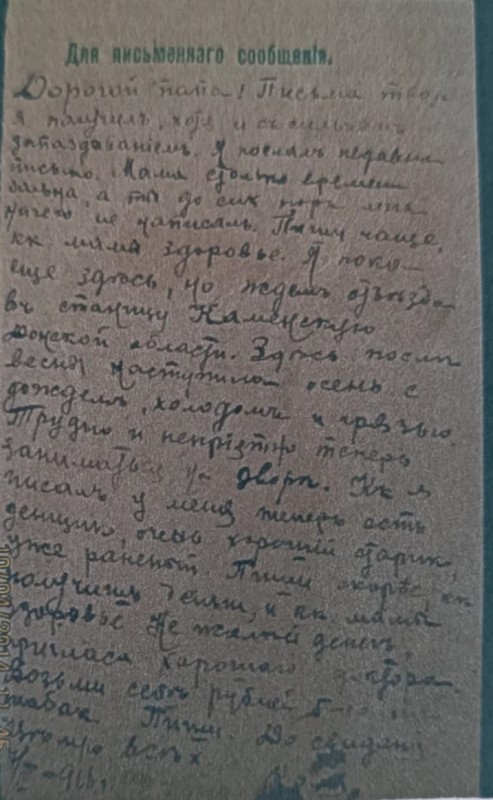 Для письменнаго сообщенія.
Дорогой папа! Письма твои
я получилъ, хотя и съ сильнымъ
запаздываніемъ. Я послалъ недавно
письмо. Мама столько времени
больна, а ты до сихъ поръ мнѣ
ничего не написалъ. Пиши чаще,
какъ мама здоровье. Я пока
еще здѣсь, но ждемъ отъѣзда
въ станицу Каменскую
Донской области. Здѣсь послѣ
весны наступила осень с
дождемъ, холодомъ и грязью.
Трудно и непріятно теперь
заниматься на дворѣ. Какъ я
писалъ у меня теперь есть
денщикъ, очень хорошій старик,
уже раненый. Пиши скорѣе, какъ
получишь деньги, и какъ мамы
здоровье. Не жалѣй денегъ,
пригласи хорошаго доктора.
Возьми себѣ рублей 5-10 на
табакъ. Пиши. До свиданія
Цѣлую всѣхъ